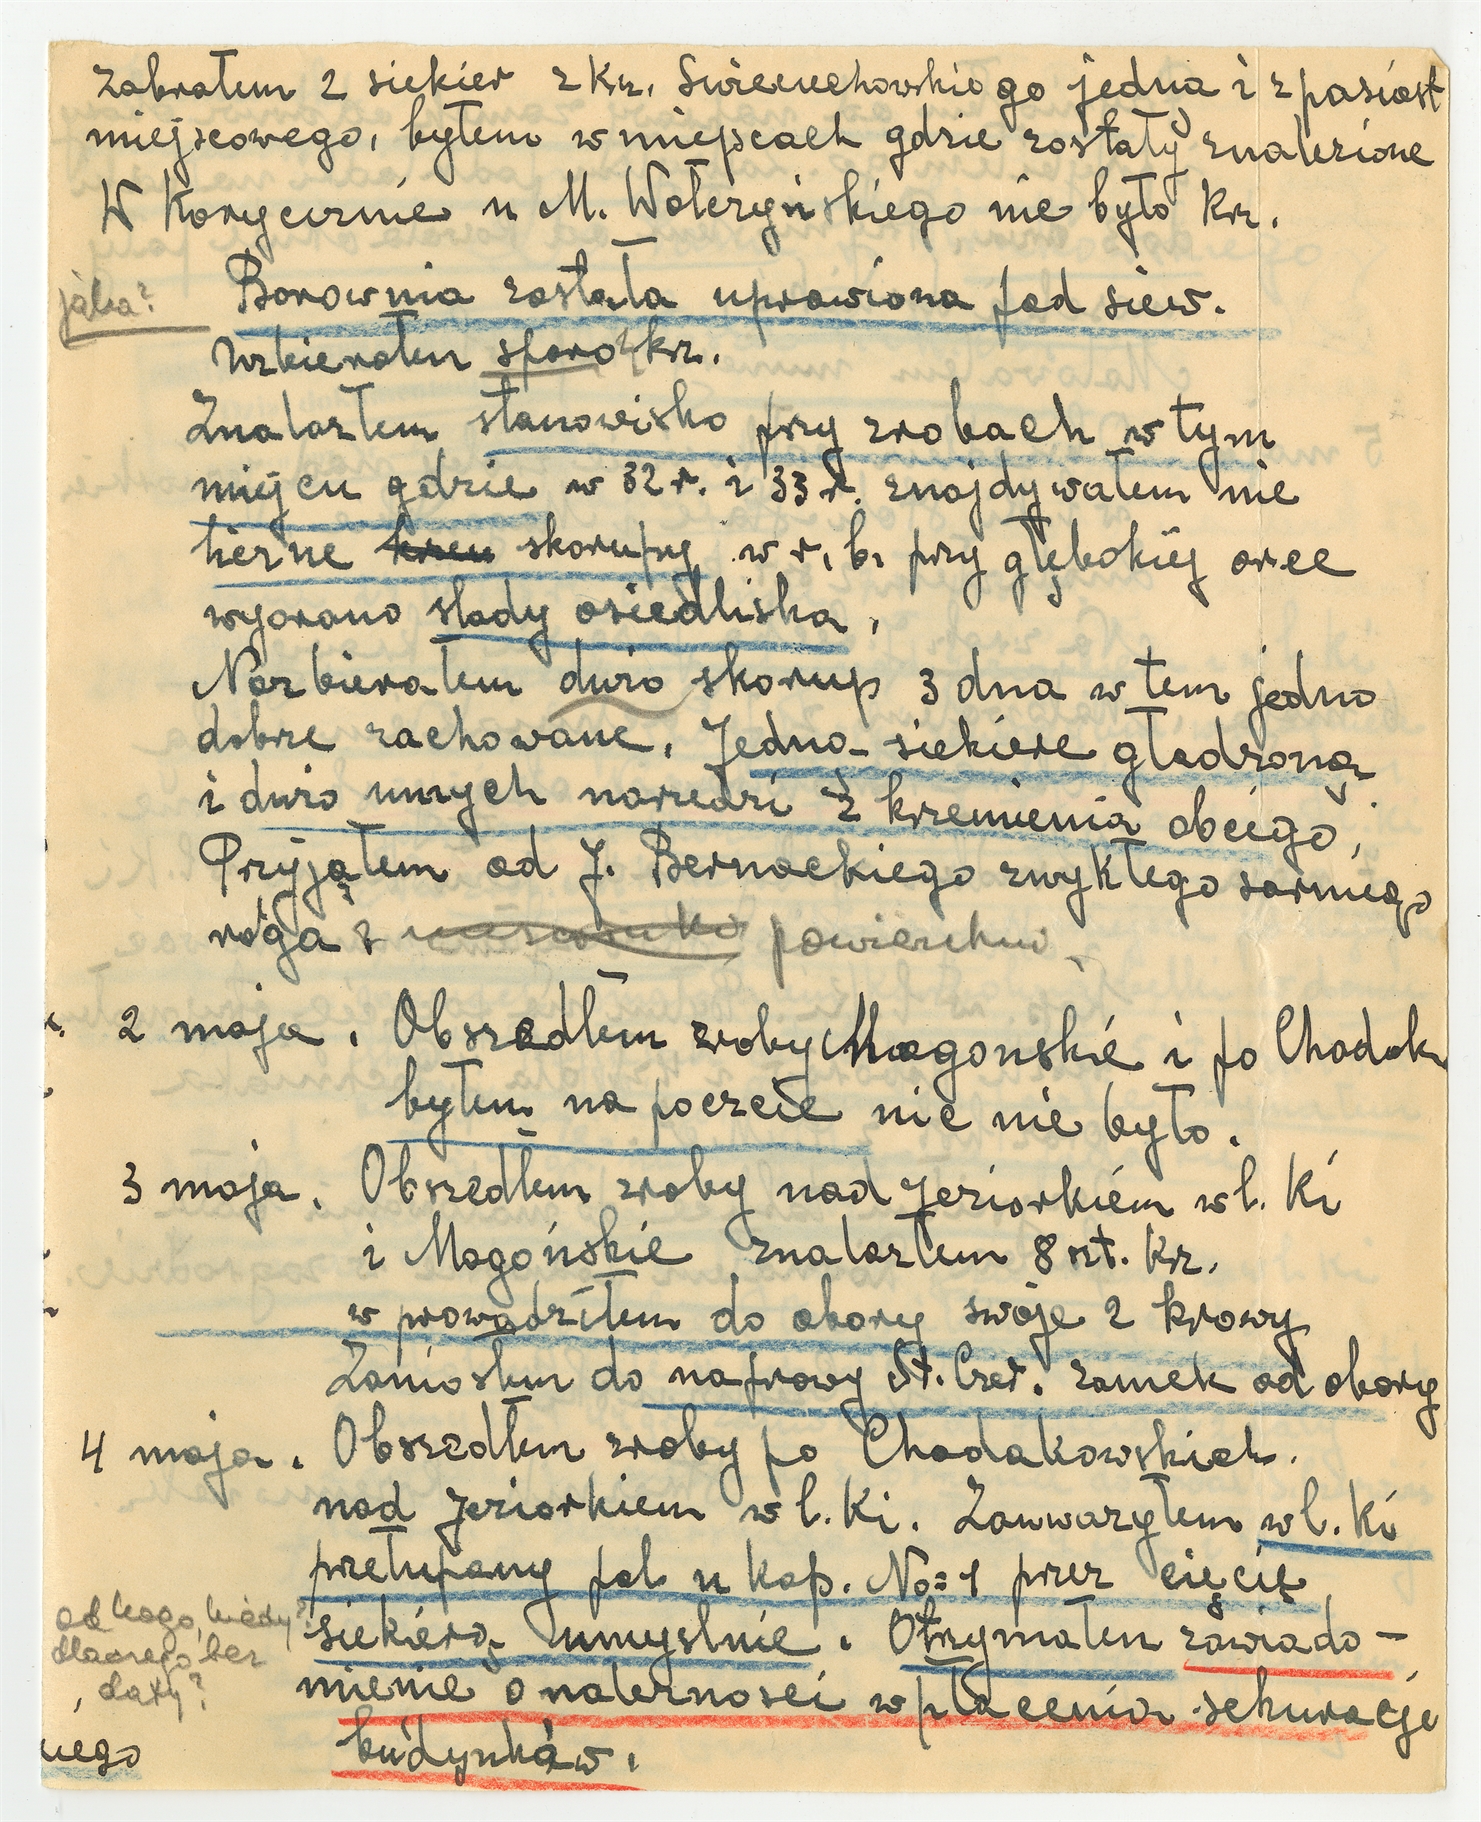 zabrałem 2 siekier z Kr. Świeciechowskiego jedna i z pasiast
miejscowego, byłem w miejscach gdzie zostały znalezione
W Koryciznie u M. Wołczyńskiego nie było Kr.
jaka? Borownia została uprawiona pod siew.
Uzbierałem sporo kr.
Znalazłem stanowisko przy zrobach w tym
miejcu gdzie w 32 r. i 33 r. znajdywałem nie
liczne skorupy w r. b. przy głębokiej orce
wyorano ślady osiedliska,
Nazbierałem dużo skorup 3 dna w tem jedno
dobrze zachowane. Jedno siekierę gładzoną
i dużo innych narzędzi z krzemienia obcego,
Przyjąłem od J. Bernackiego zwykłego sarniego
roga z powierzchni.
2 maja. Obszedłem zroby Magonskie i po Chodak
byłem na poczcie nic nie było.
3 maja. Obszedłem zroby nad Jeziorkiem w l. Ki
i Magońskie znalazłem 8 szt. Kr.
w prowadziłem do obory swoje 2 krowy
Zaniosłem do naprawy St. Czer. zamek od obory
4 maja. Obszedłem zroby po Chodakowskich.
nad Jeziorkiem w l. Ki. Zauważyłem w l. Ki
przełupany pal u kop. No=1 przez cięcię
siekierą umyslnie. Otrzymałem zawiado-
mienie o należnosci wpłacenia sekuracje
budynków.
od kogo, kiedy?
dlaczego bez
daty?
iego